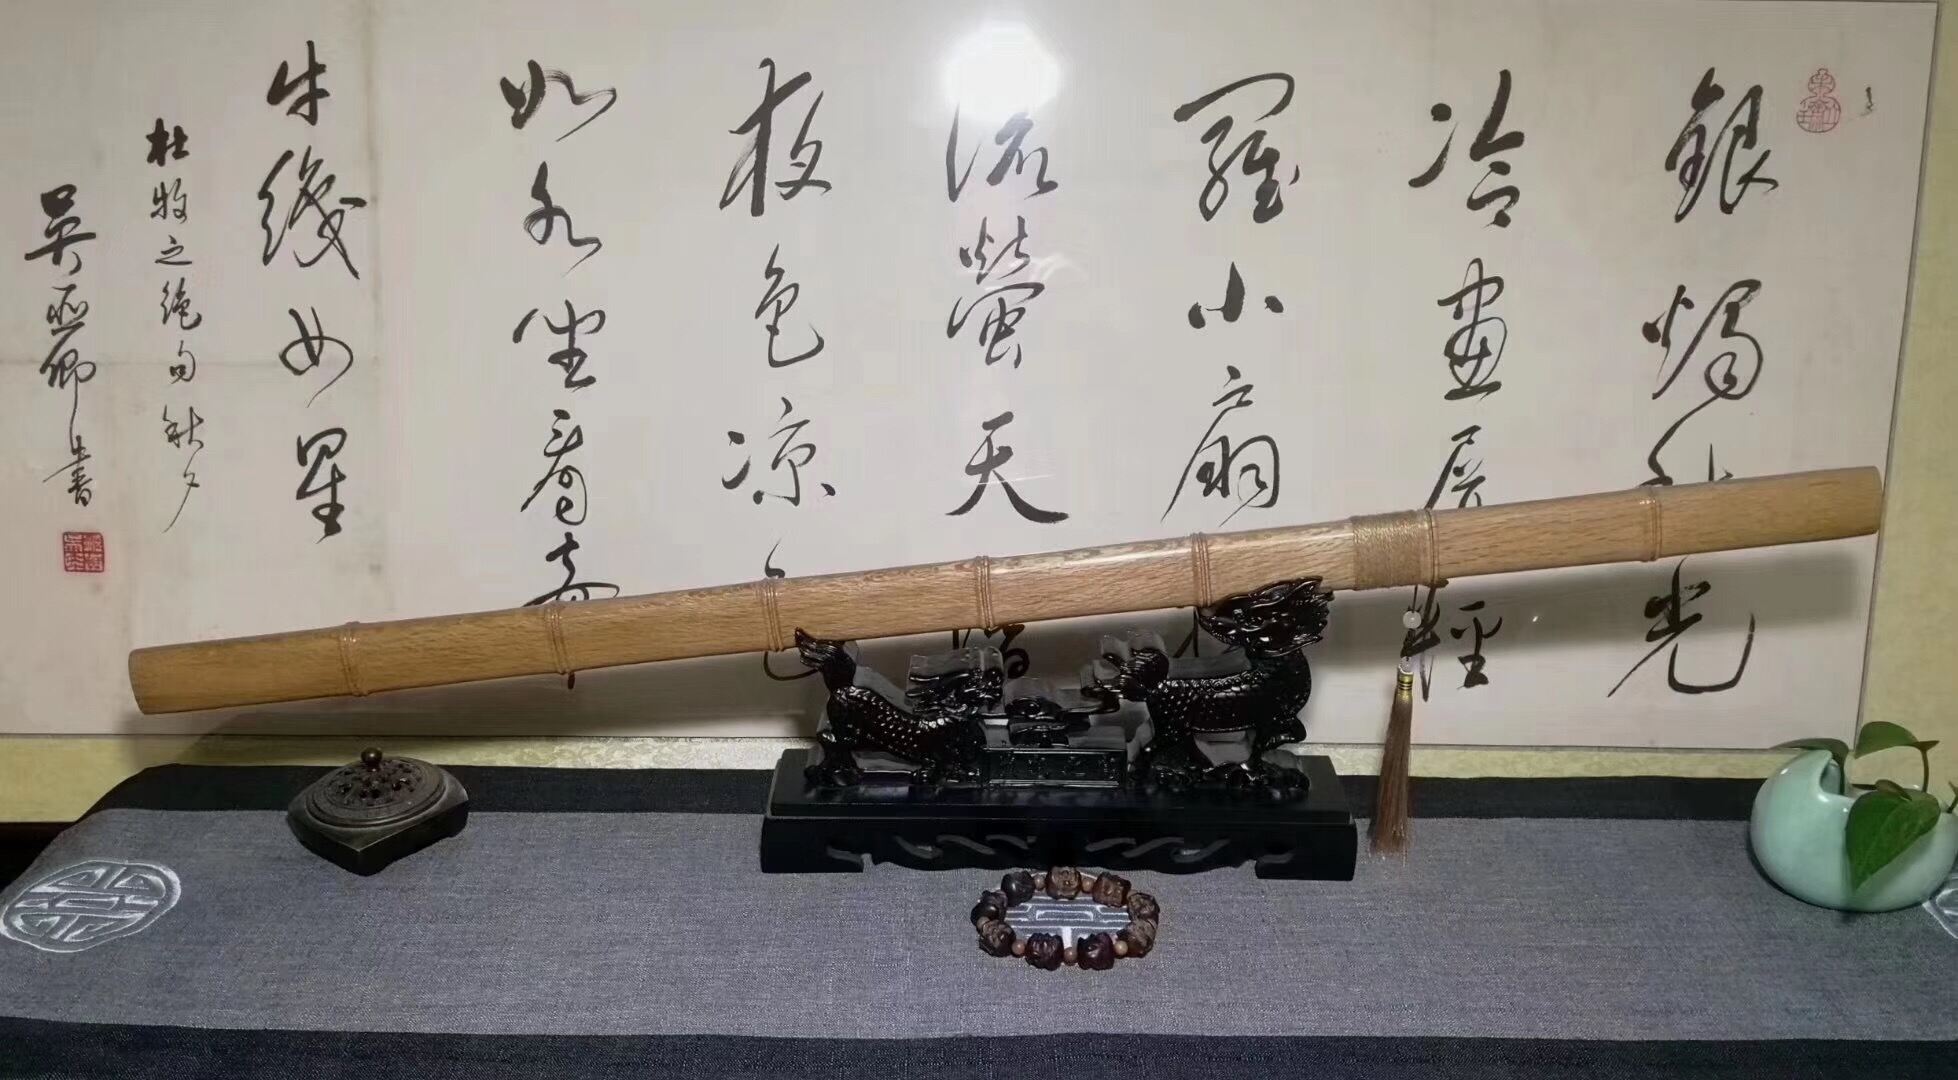 銀燭秋光
冷畫屏輕
羅小扇
流螢天階
夜色凉
如水坐看牽
牛織女星
杜牧之絶句秋夕
吴亞卿書